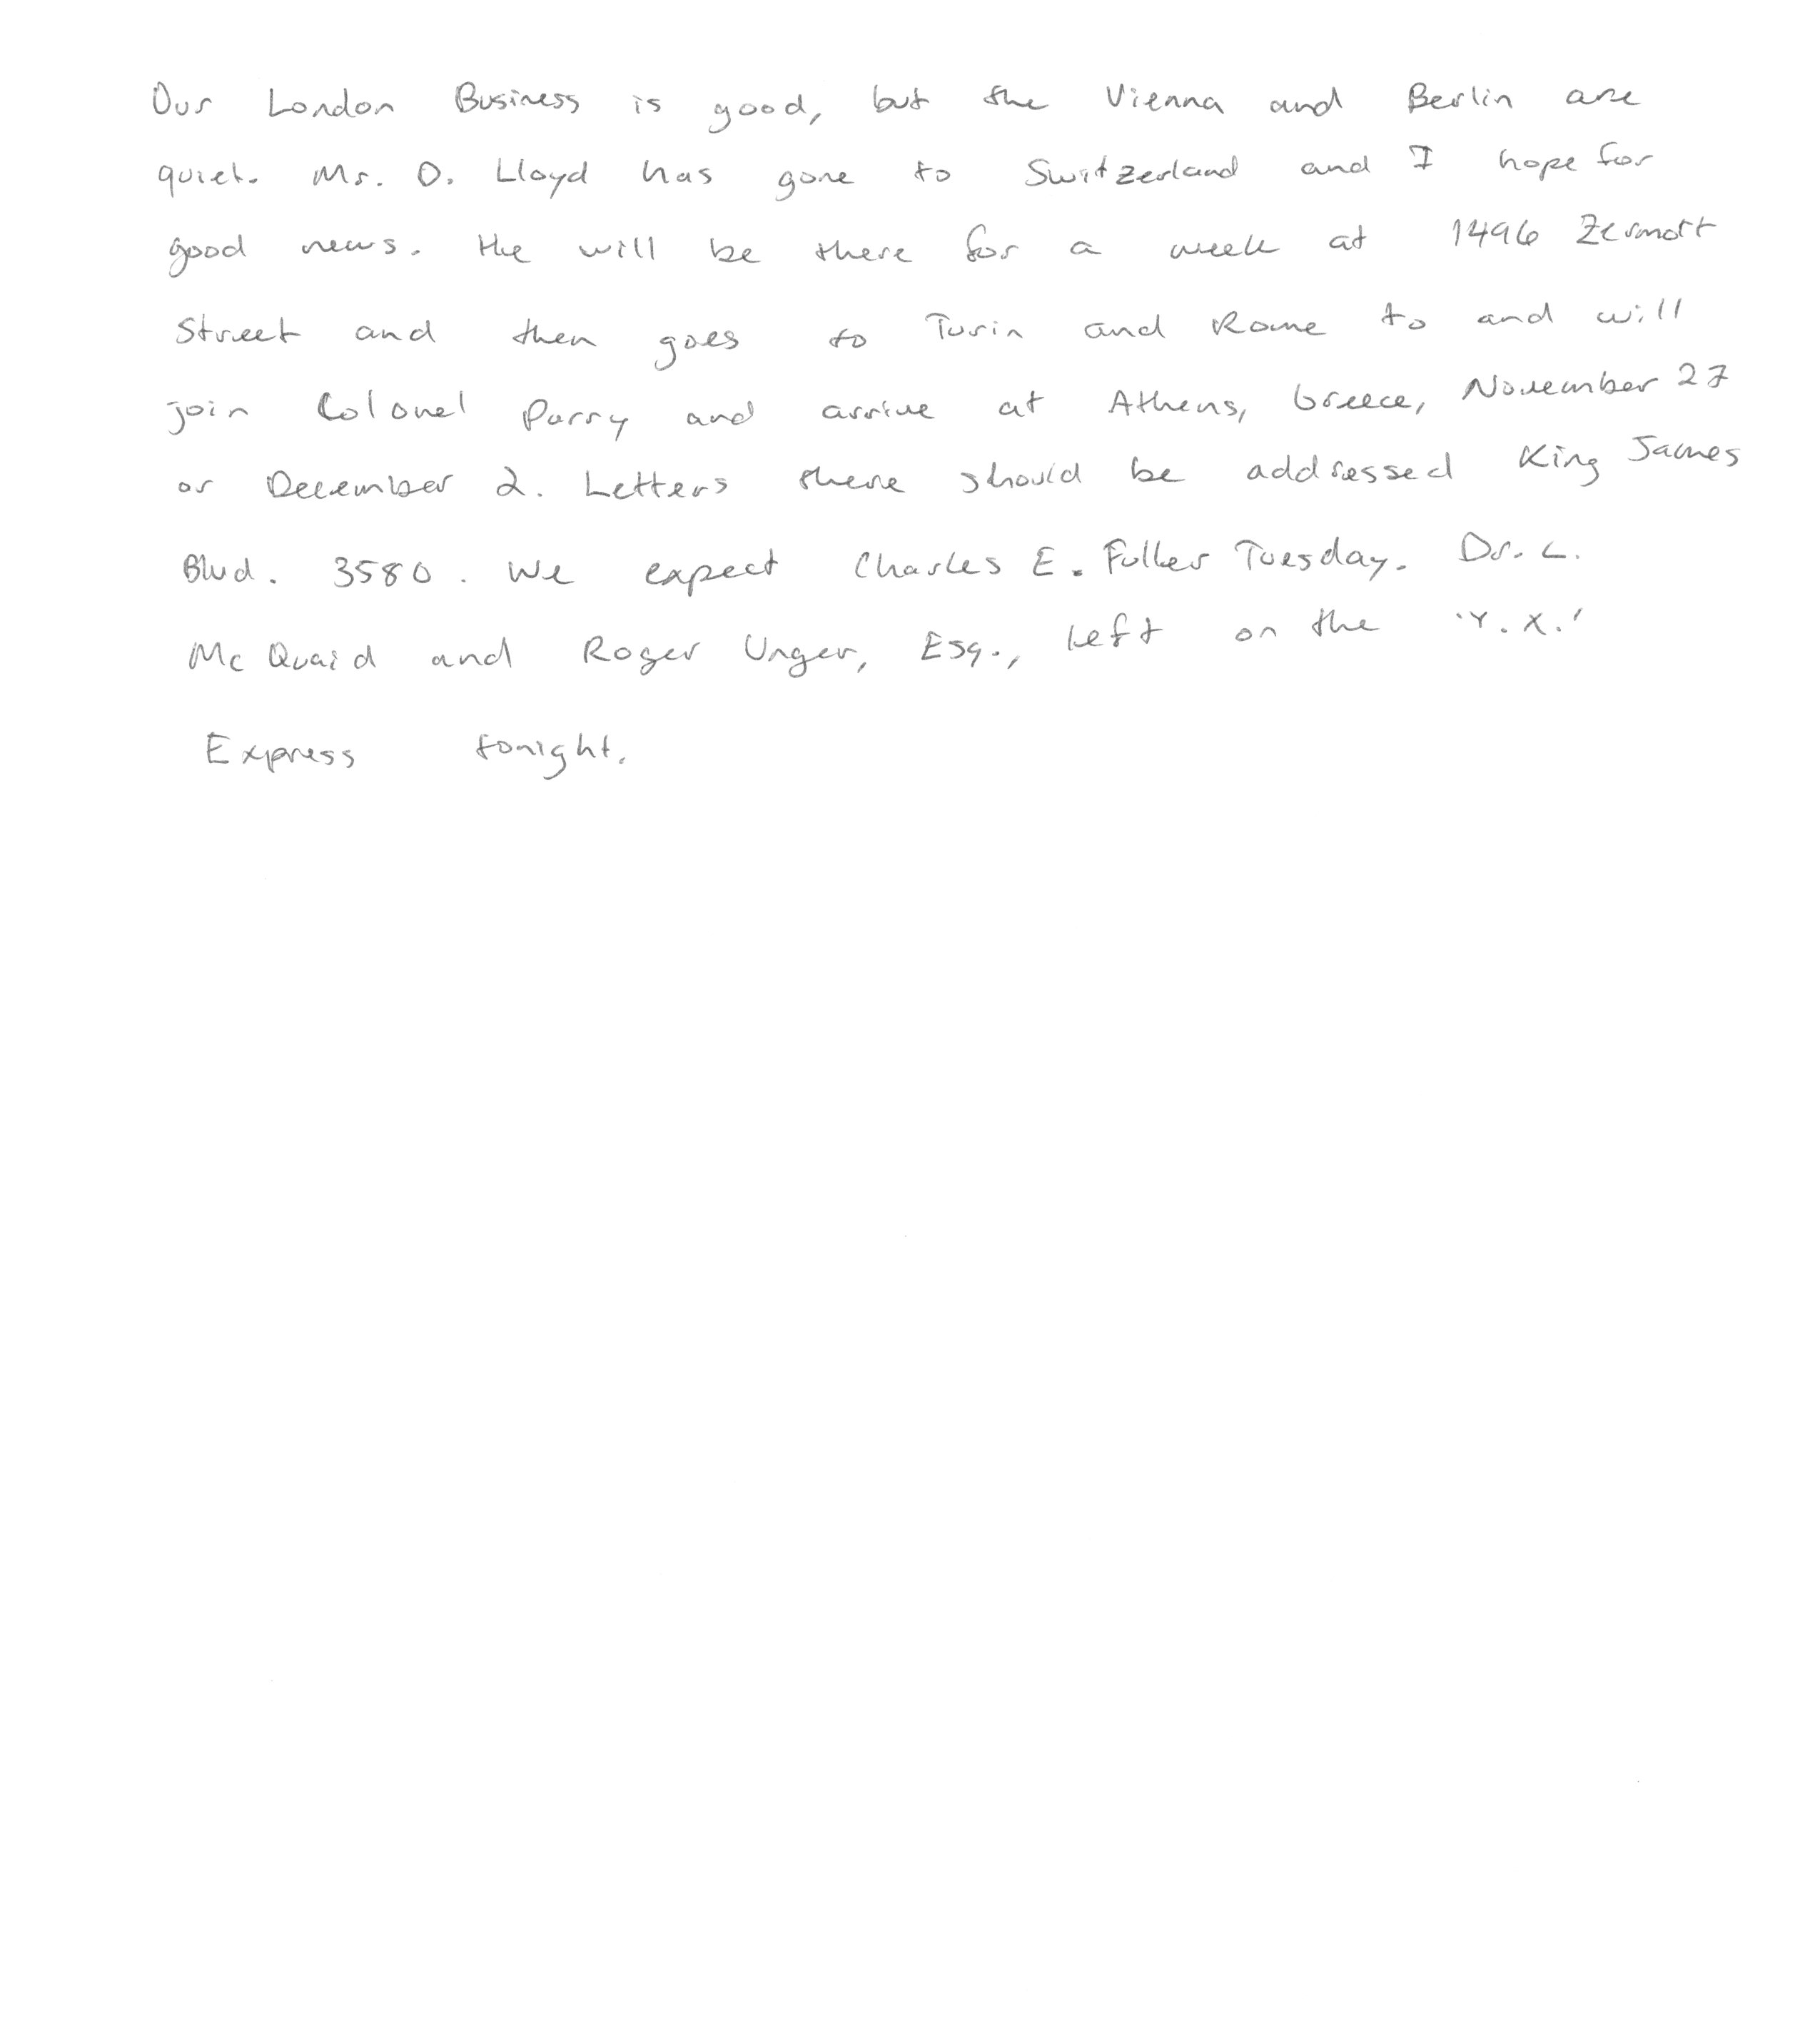 Our London Business is good, but the Vienna and Berlin are
quiet. Mr. D. Lloyd has gone to Switzerland and I hope for
good news. He will be there for a week at 1496 Zermott
Street and then goes to Turin and Rome to and will
join Colonel Parry and arrive at Athens, Greece, November 27
or December 2. Letters there should be addressed King James
Blvd. 3580. We expect Charles E. Fuller Tuesday. Dr. L.
McQuaid and Roger Unger, Esq., left on the 'Y.X.'
Express tonight.